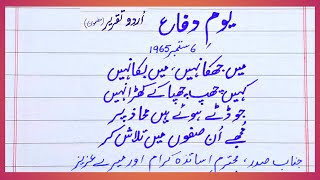 یومِ دفاع
اُردو تقریر (مضمون)
6 ستمبر 1965
میں جھکا نہیں، میں بکا نہیں
کہیں چھپ چھپا کے کھڑا نہیں
جو ڈٹے ہوئے ہیں محاذ پر
مُجھے اُن صفوں میں تلاش کر
جناب صدر، محترم اساتذہ کرام اور میرے عزیز